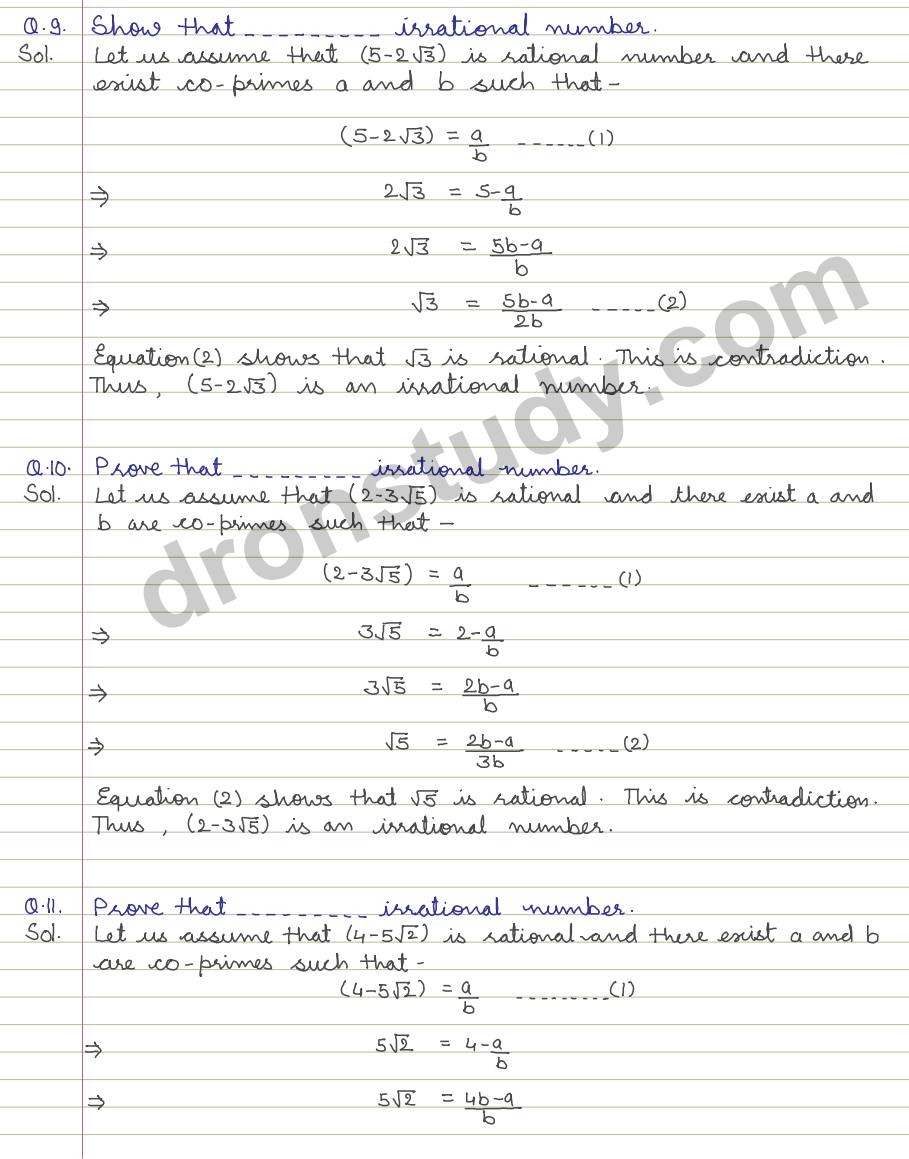 Q.9. Show that --------- irrational number.
Sol. Let us assume that (5-2√3) is rational number and there
exist co-primes a and b such that -
(5-2√3) = a/b ------(1)
⇒ 2√3 = 5-a/b
⇒ 2√3 = (5b-a)/b
⇒ √3 = (5b-a)/2b -----(2)
Equation (2) shows that √3 is rational. This is contradiction.
Thus, (5-2√3) is an irrational number.
Q.10. Prove that --------- irrational number.
Sol. Let us assume that (2-3√5) is rational and there exist a and
b are co-primes such that -
(2-3√5) = a/b ------(1)
⇒ 3√5 = 2-a/b
⇒ 3√5 = (2b-a)/b
⇒ √5 = (2b-a)/3b -----(2)
Equation (2) shows that √5 is rational. This is contradiction.
Thus, (2-3√5) is an irrational number.
Q.11. Prove that --------- irrational number.
Sol. Let us assume that (4-5√2) is rational and there exist a and b
are co-primes such that -
(4-5√2) = a/b ---------(1)
⇒ 5√2 = 4-a/b
⇒ 5√2 = (4b-a)/b
dronstudy.com